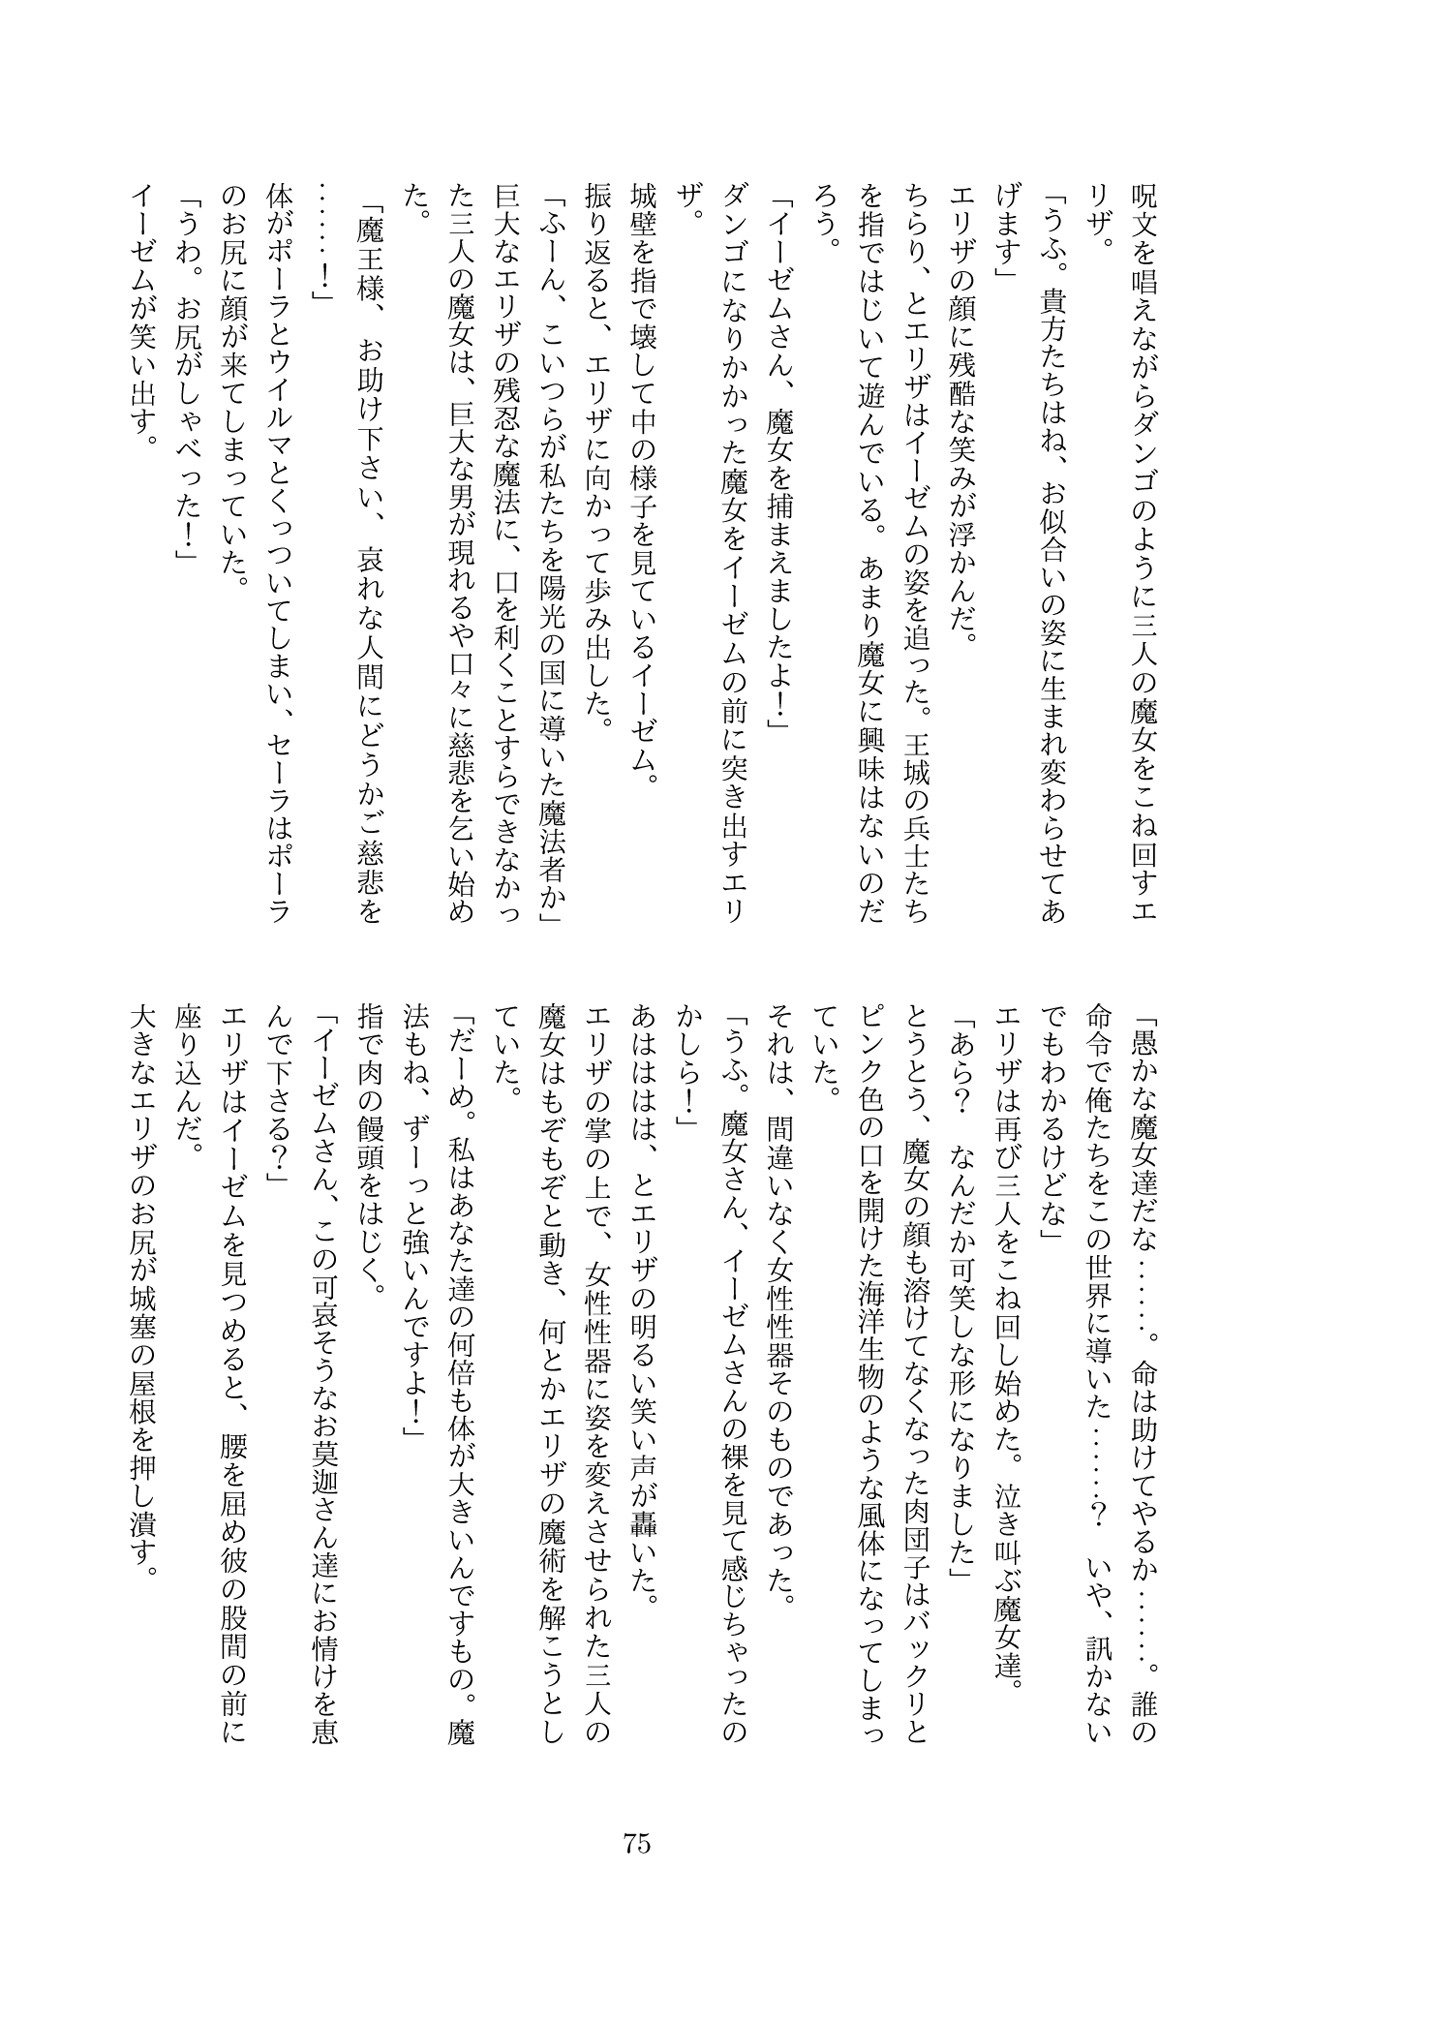 呪文を唱えながらダンゴのように三人の魔女をこね回すエ
リザ。
「うふ。貴方たちはね、お似合いの姿に生まれ変わらせてあ
げます」
エリザの顔に残酷な笑みが浮かんだ。
ちらり、とエリザはイーゼムの姿を追った。王城の兵士たち
を指ではじいて遊んでいる。あまり魔女に興味はないのだ
ろう。
「イーゼムさん、魔女を捕まえましたよ！」
ダンゴになりかかった魔女をイーゼムの前に突き出すエリ
ザ。
城壁を指で壊して中の様子を見ているイーゼム。
振り返ると、エリザに向かって歩み出した。
「ふーん、こいつらが私たちを陽光の国に導いた魔法者か」
巨大なエリザの残忍な魔法に、口を利くことすらできなかっ
た三人の魔女は、巨大な男が現れるや口々に慈悲を乞い始め
た。
「魔王様、お助け下さい、哀れな人間にどうかご慈悲を
……！」
体がポーラとウイルマとくっついてしまい、セーラはポーラ
のお尻に顔が来てしまっていた。
「うわ。お尻がしゃべった！」
イーゼムが笑い出す。
「愚かな魔女達だな……。命は助けてやるか……。誰の
命令で俺たちをこの世界に導いた……？　いや、訊かない
でもわかるけどな」
エリザは再び三人をこね回し始めた。泣き叫ぶ魔女達。
「あら？　なんだか可笑しな形になりました」
とうとう、魔女の顔も溶けてなくなった肉団子はバックリと
ピンク色の口を開けた海洋生物のような風体になってしまっ
ていた。
それは、間違いなく女性性器そのものであった。
「うふ。魔女さん、イーゼムさんの裸を見て感じちゃったの
かしら！」
あはははは、とエリザの明るい笑い声が轟いた。
エリザの掌の上で、女性性器に姿を変えさせられた三人の
魔女はもぞもぞと動き、何とかエリザの魔術を解こうとし
ていた。
「だーめ。私はあなた達の何倍も体が大きいんですもの。魔
法もね、ずーっと強いんですよ！」
指で肉の饅頭をはじく。
「イーゼムさん、この可哀そうなお莫迦さん達にお情けを恵
んで下さる？」
エリザはイーゼムを見つめると、腰を屈め彼の股間の前に
座り込んだ。
大きなエリザのお尻が城塞の屋根を押し潰す。
75